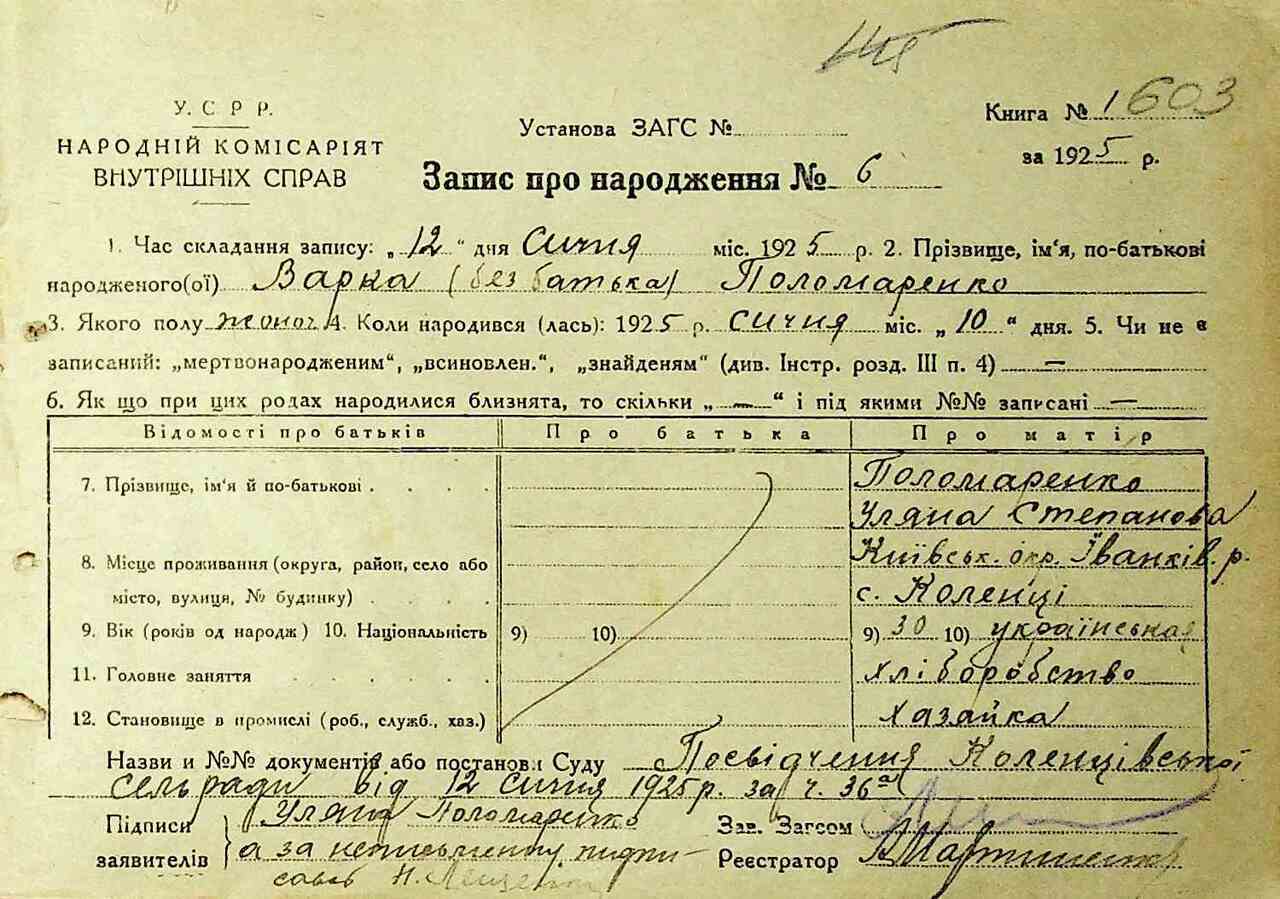 У. С Р Р.
НАРОДНІЙ КОМІСАРІЯТ
ВНУТРІШНІХ СПРАВ
Установа ЗАГС №
Запис про народження № 6
Книга № 1 603
за 1925 р.
1. Час складання запису: „12“ дня Січня міс. 1925 р. 2. Прізвище, ім'я, по-батькові
народженого(ої) Варка (без батька) Поломаренко
3. Якого полу жоноч 4. Коли народився (лась): 1925 р. січня міс. „10“ дня. 5. Чи не є
записаний: „мертвонародженим“, „всиновлен.“, „знайденям“ (див. Інстр. розд. III п. 4) —
6. Як що при цих родах народилися близнята, то скільки „—“ і під якими №№ записані —
Відомості про батьків Про батька Про матір
7. Прізвище, ім'я й по-батькові Поломаренко
Уляна Степанова
8. Місце проживання (округа, район, село або Київськ. окр. Іванків. р.
місто, вулиця, № будинку) с. Коленці
9. Вік (років од народж) 10. Національність 9) 10) 9) 30 10) українська
11. Головне заняття хліборобство
12. Становище в промислі (роб., служб., хаз.) хазайка
Назви и №№ документів або постанови Суду Посвідчення Коленцівської
сельради від 12 січня 1925 р. за ч. 36
Підписи Уляна Поломаренко Зав. Загсом
заявителів а за неписьменну підпи-
савъ Н. Реестратор